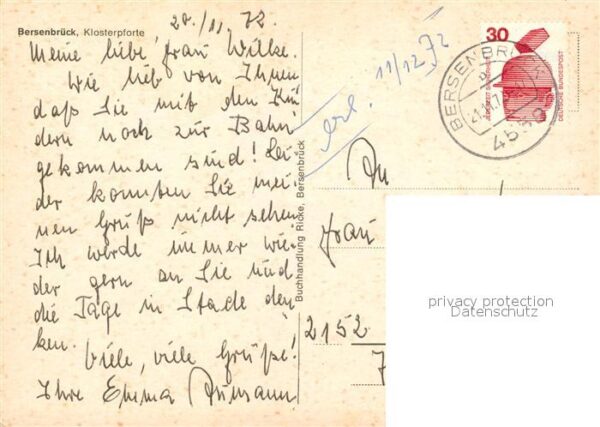 20./11. 72.
Bersenbrück, Klosterpforte
Meine liebe, Frau Wilke.
Wie lieb von Ihnen
daß Sie mit den Kin
dern noch zur Bahn
gekommen sind! Lei
der konnten Sie mei
nen Gruß nicht sehen
Ich werde immer wie
der gern an Sie und
die Tage in Stade den
ken.
Viele, viele Grüße!
Ihre Emma
erl. 11/12 72
Buchhandlung Ricke, Bersenbrück
30
DEUTSCHE BUNDESPOST
BERSENBRÜCK
4559
An
Frau
2152
privacy protection
Datenschutz